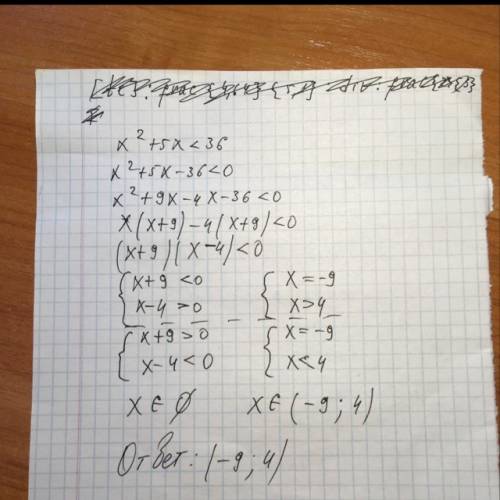 x²+5x<36
x²+5x-36<0
x²+9x-4x-36<0
x(x+9)-4(x+9)<0
(x+9)(x-4)<0
{x+9<0 {x=-9
x-4>0 x>4
{x+9>0 {x=-9
x-4<0 x<4
x∈∅ x∈(-9;4)
Ответ: (-9;4)